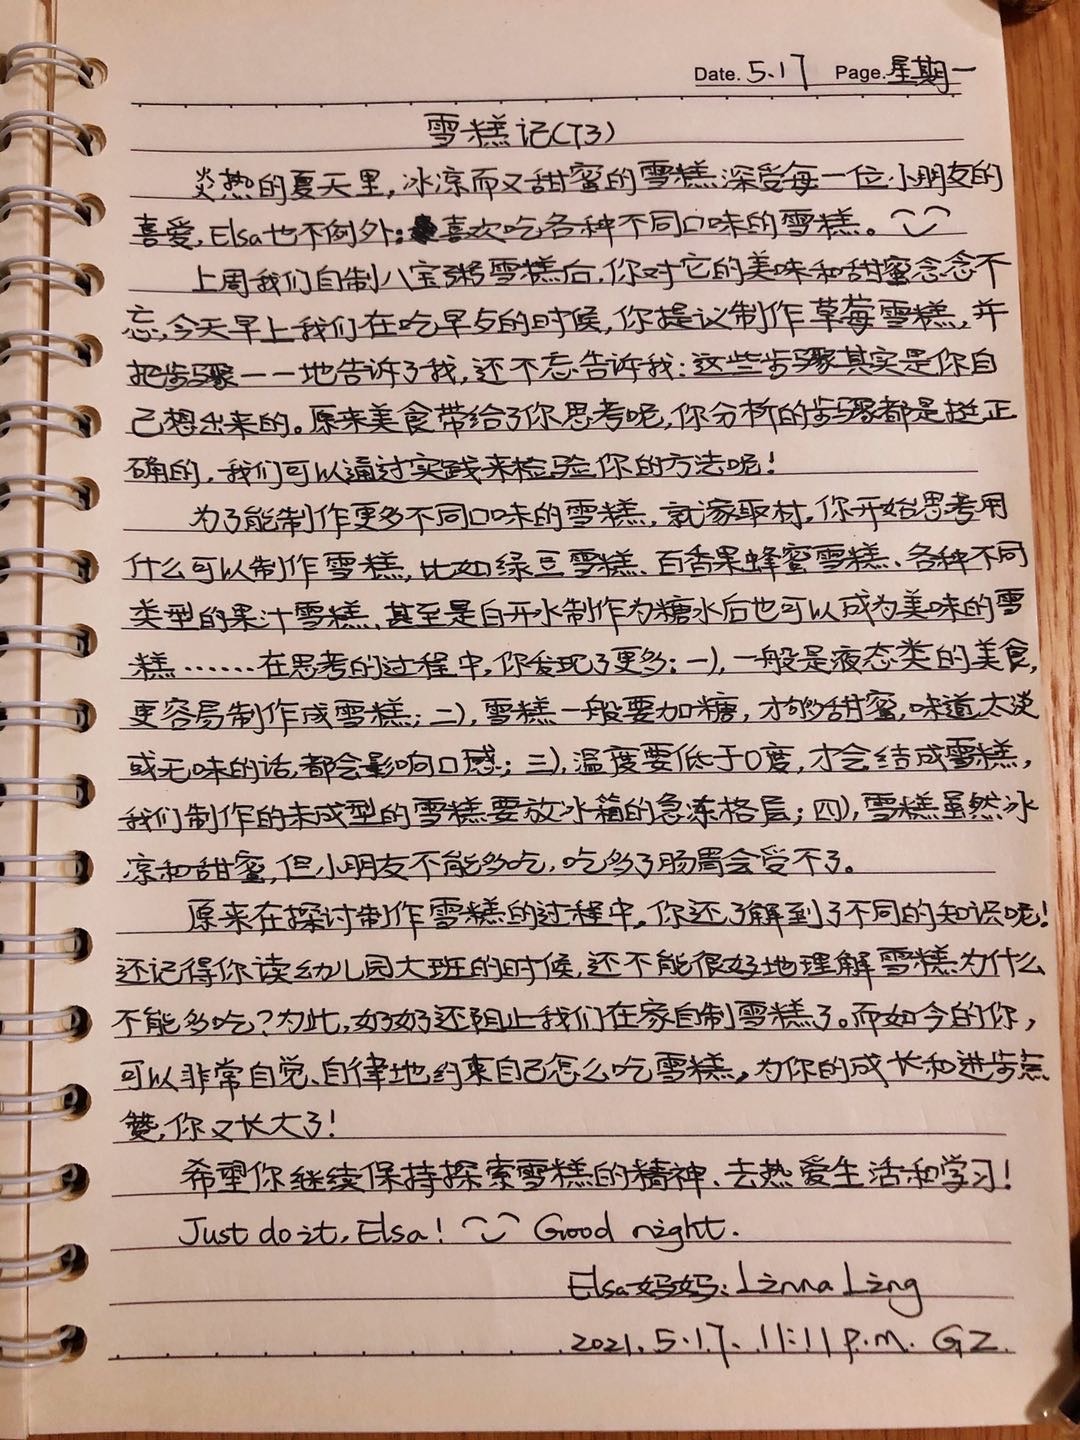 Date. 5.17 Page. 星期一
雪糕记(73)
炎热的夏天里,冰凉而又甜蜜的雪糕深受每一位小朋友的
喜爱,Elsa也不例外:喜欢吃各种不同口味的雪糕。
上周我们自制八宝粥雪糕后,你对它的美味和甜蜜念念不
忘,今天早上我们在吃早点的时候,你提议制作草莓雪糕,并
把步骤一一地告诉了我,还不忘告诉我:这些步骤其实是你自
己想出来的。原来美食带给了你思考呢,你分析的步骤都是挺正
确的,我们可以通过实践来检验你的方法呢!
为了能制作更多不同口味的雪糕,就家取材,你开始思考用
什么可以制作雪糕,比如绿豆雪糕、百香果蜂蜜雪糕、各种不同
类型的果汁雪糕,甚至是白开水制作为糖水后也可以成为美味的雪
糕……在思考的过程中,你发现了更多:一),一般是液态类的美食,
更容易制作成雪糕;二),雪糕一般要加糖,才够甜蜜,味道太淡
或无味的话,都会影响口感;三),温度要低于0度,才会结成雪糕,
我们制作的未成型的雪糕要放冰箱的急冻格层;四),雪糕虽然冰
凉和甜蜜,但小朋友不能多吃,吃多了肠胃会受不了。
原来在探讨制作雪糕的过程中,你还了解到了不同的知识呢!
还记得你读幼儿园大班的时候,还不能很好地理解雪糕为什么
不能多吃?为此,奶奶还阻止我们在家自制雪糕了。而如今的你,
可以非常自觉、自律地约束自己怎么吃雪糕,为你的成长和进步点
赞,你又长大了!
希望你继续保持探索雪糕的精神、去热爱生活和学习!
Just do it, Elsa! Good night.
Elsa妈妈: Linna Ling
2021.5.17. 11:11 p.m. GZ.